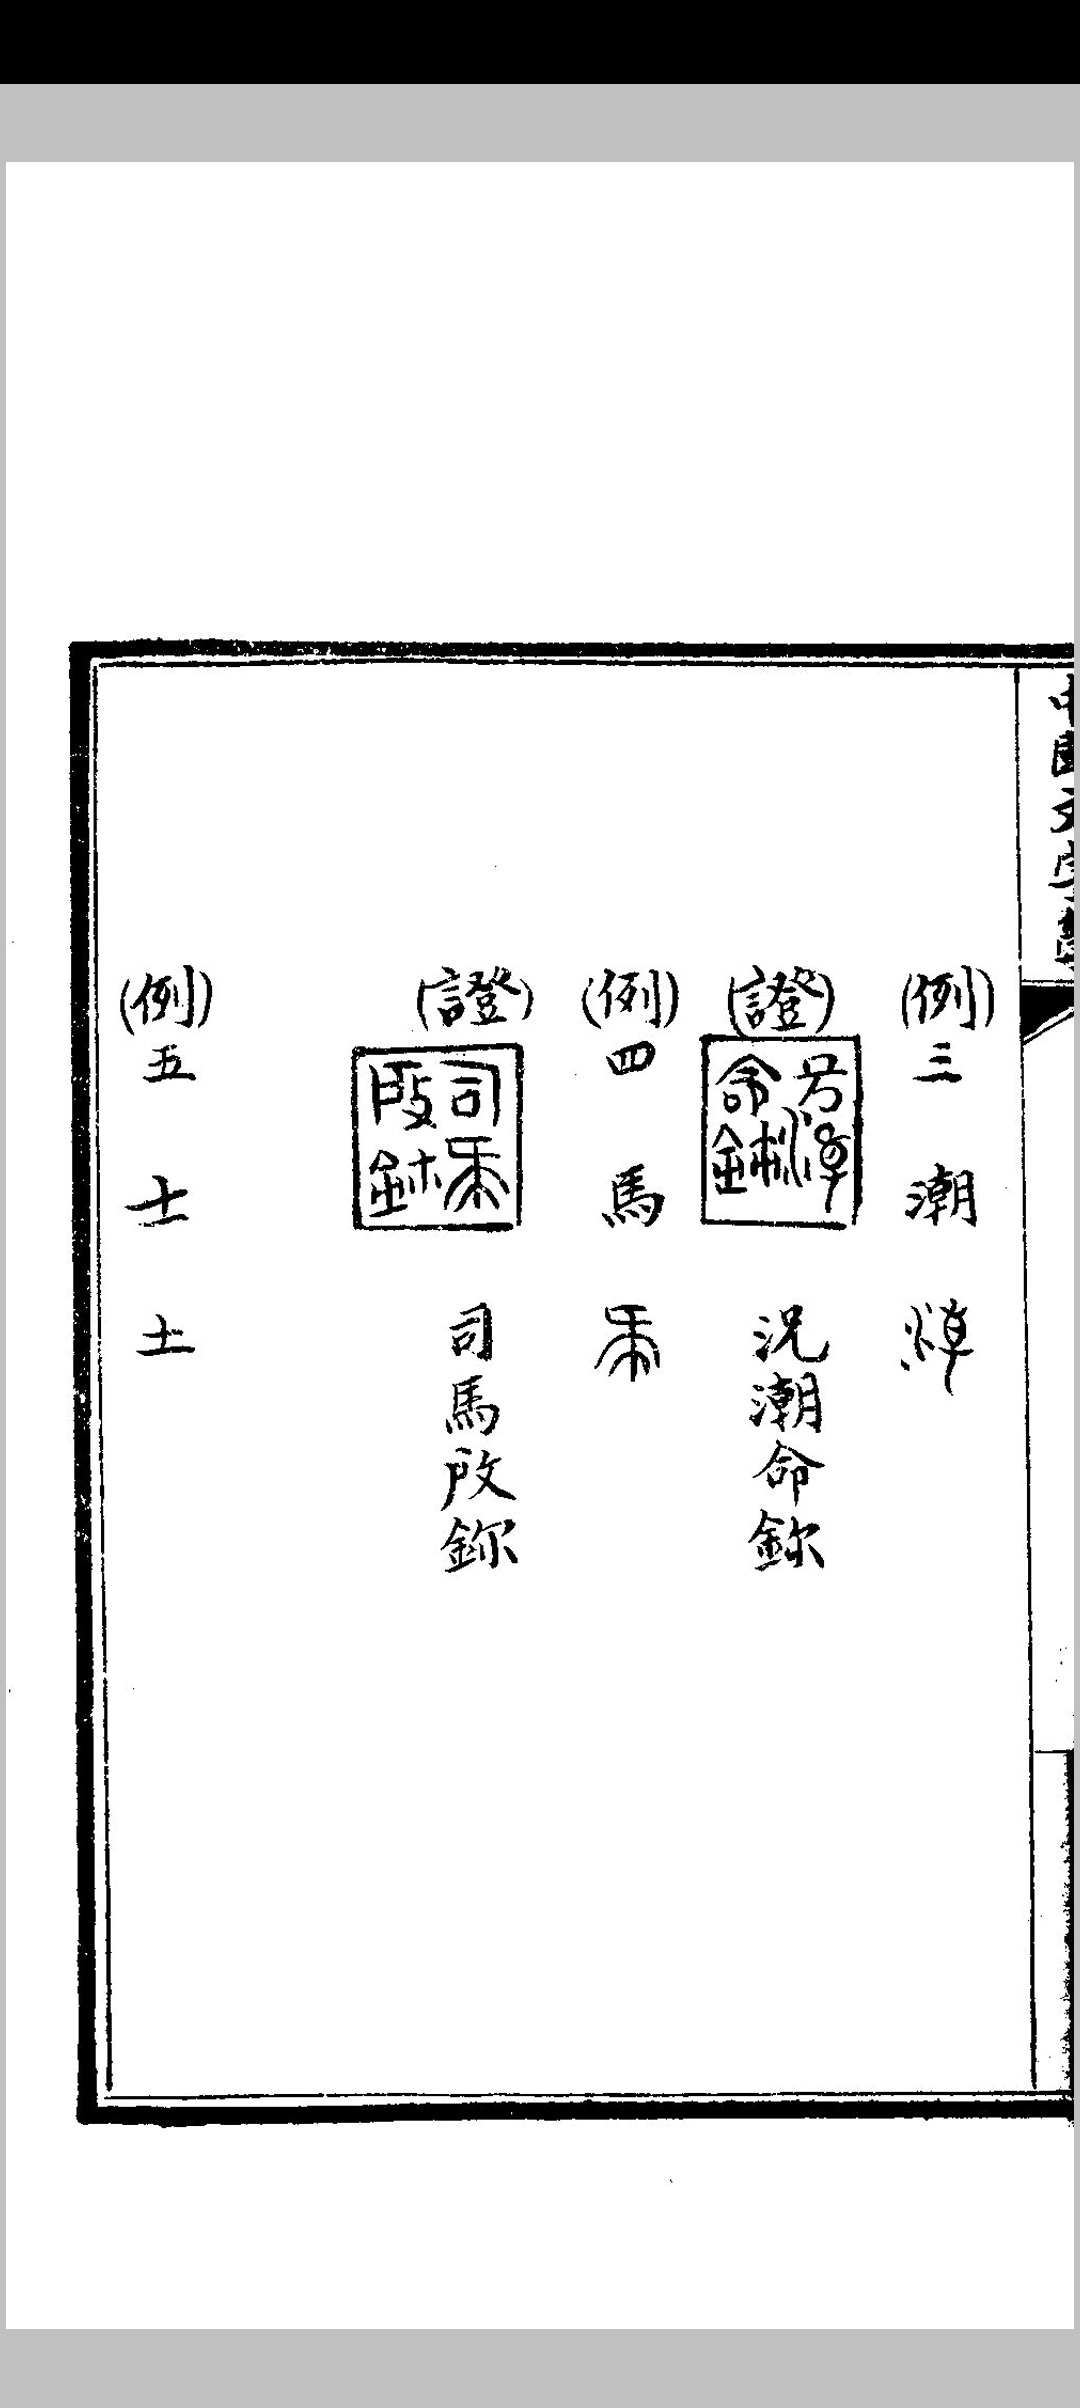 中國文字
(例)三 潮
(證) 況潮命鉨
(例)四 馬
(證) 司馬啟鉨
(例)五 士 土